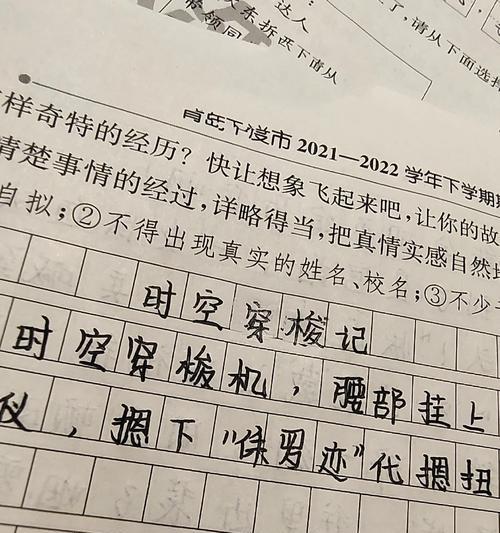 达人
带领同
东拆西下请从
了，请从下面选择
市 2021—2022 学年下学期期
样奇特的经历？快让想象飞起来吧，让你的故
清楚事情的经过，详略得当，把真情实感自然
自拟；②不得出现真实的姓名、校名；③不少
时空穿梭记
时空穿梭机，腰部挂上
仪，摁下“侏罗迹”代摁扭